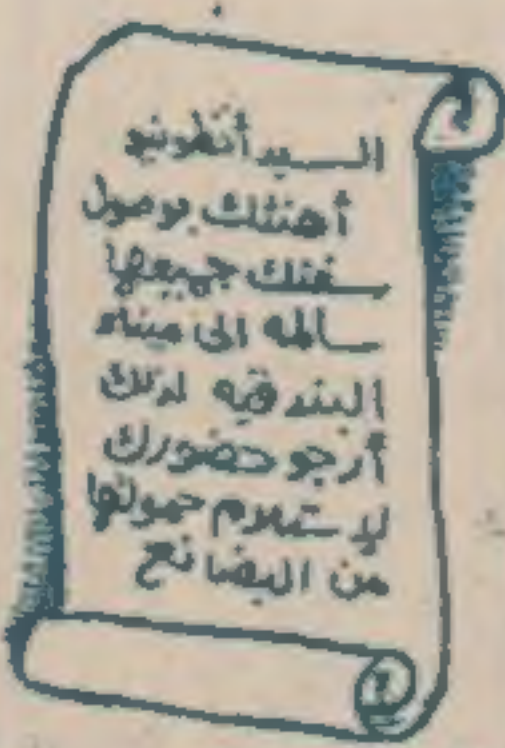 السيد أنطونيو
أهنئك بوصول
سفنك جميعها
سالمه الى ميناء
البندقيه لذلك
أرجو حضورك
لإستلام حمولتها
من البضائع